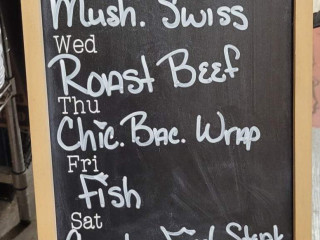 Mush. Swiss
Wed
Roast Beef
Thu
Chic. Bac. Wrap
Fri
Fish
Sat